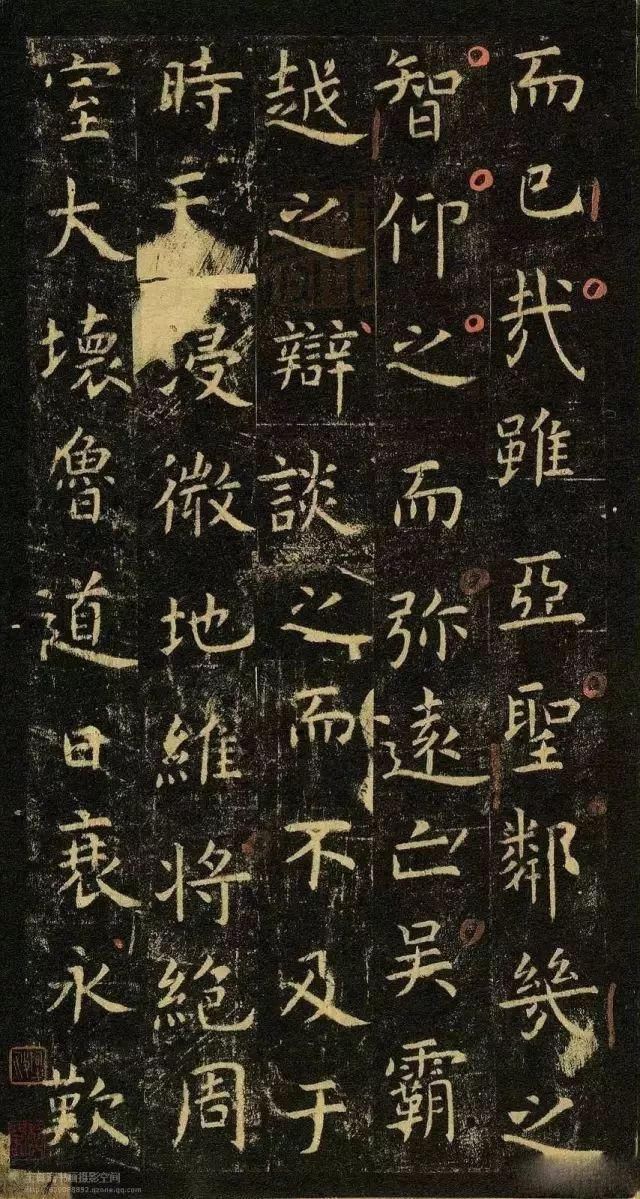 而已哉雖亞聖鄰幾之
智仰之而弥遠亡吳霸
越之辯談之而不及于
時天浸微地維將絕周
室大壞魯道日衰永歎
书画摄影空间